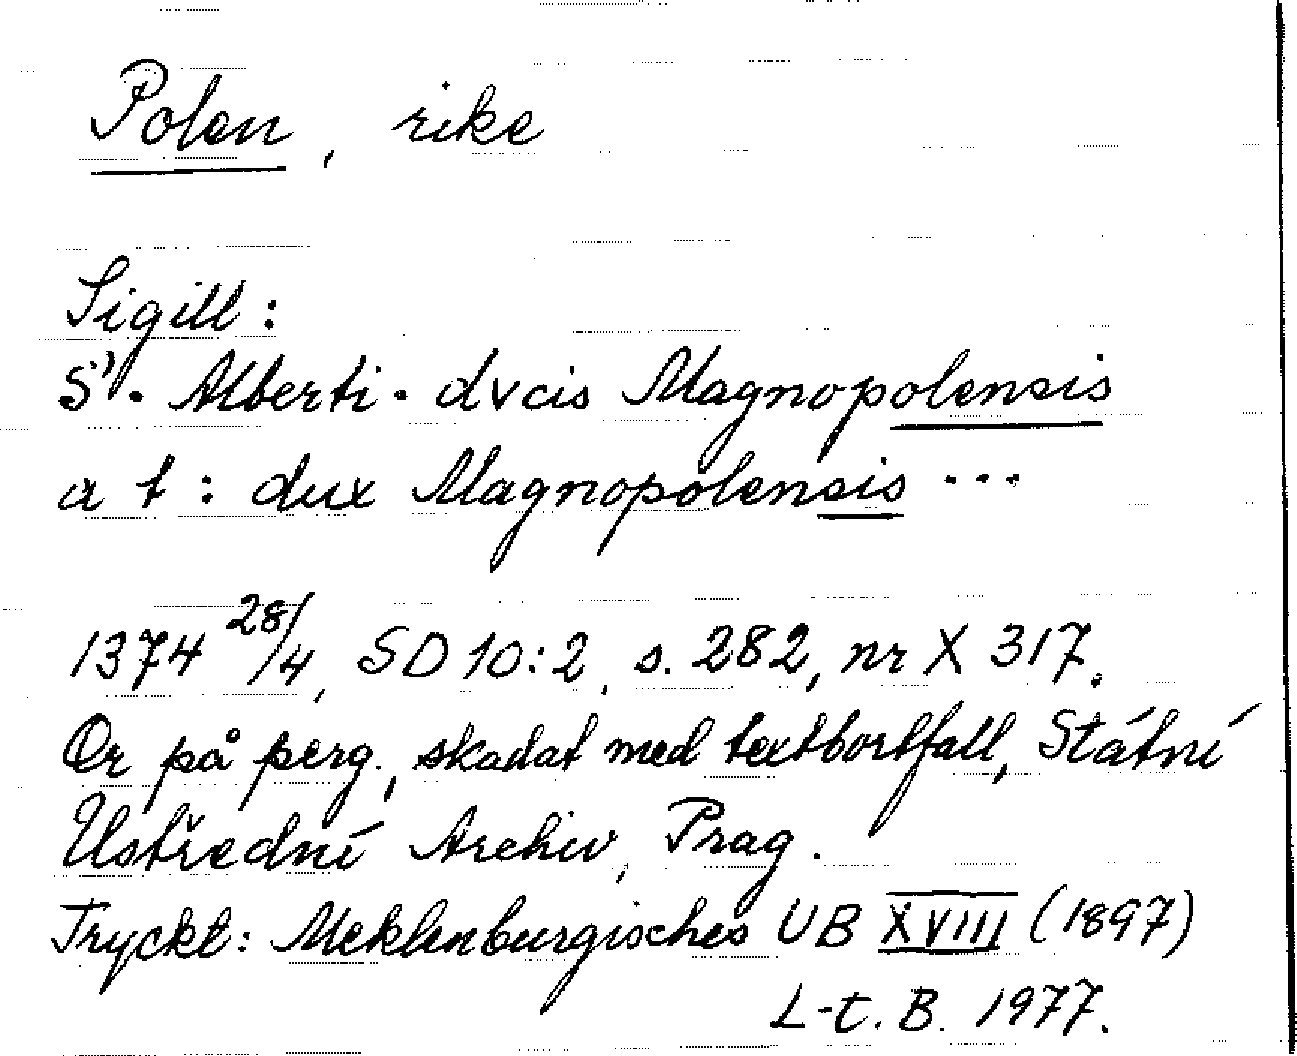 Polen, rike
Sigill:
S'. Alberti. dvcis Magnopolensis
a t: dux Magnopolensis ...
1374 28/4, SD 10:2, s. 282, nr X 317.
Or på perg., skadat med textbortfall, Státní
Ustředni Archiv, Prag.
Tryckt: Meklenburgisches UB XVIII (1897)
L-t. B. 1977.